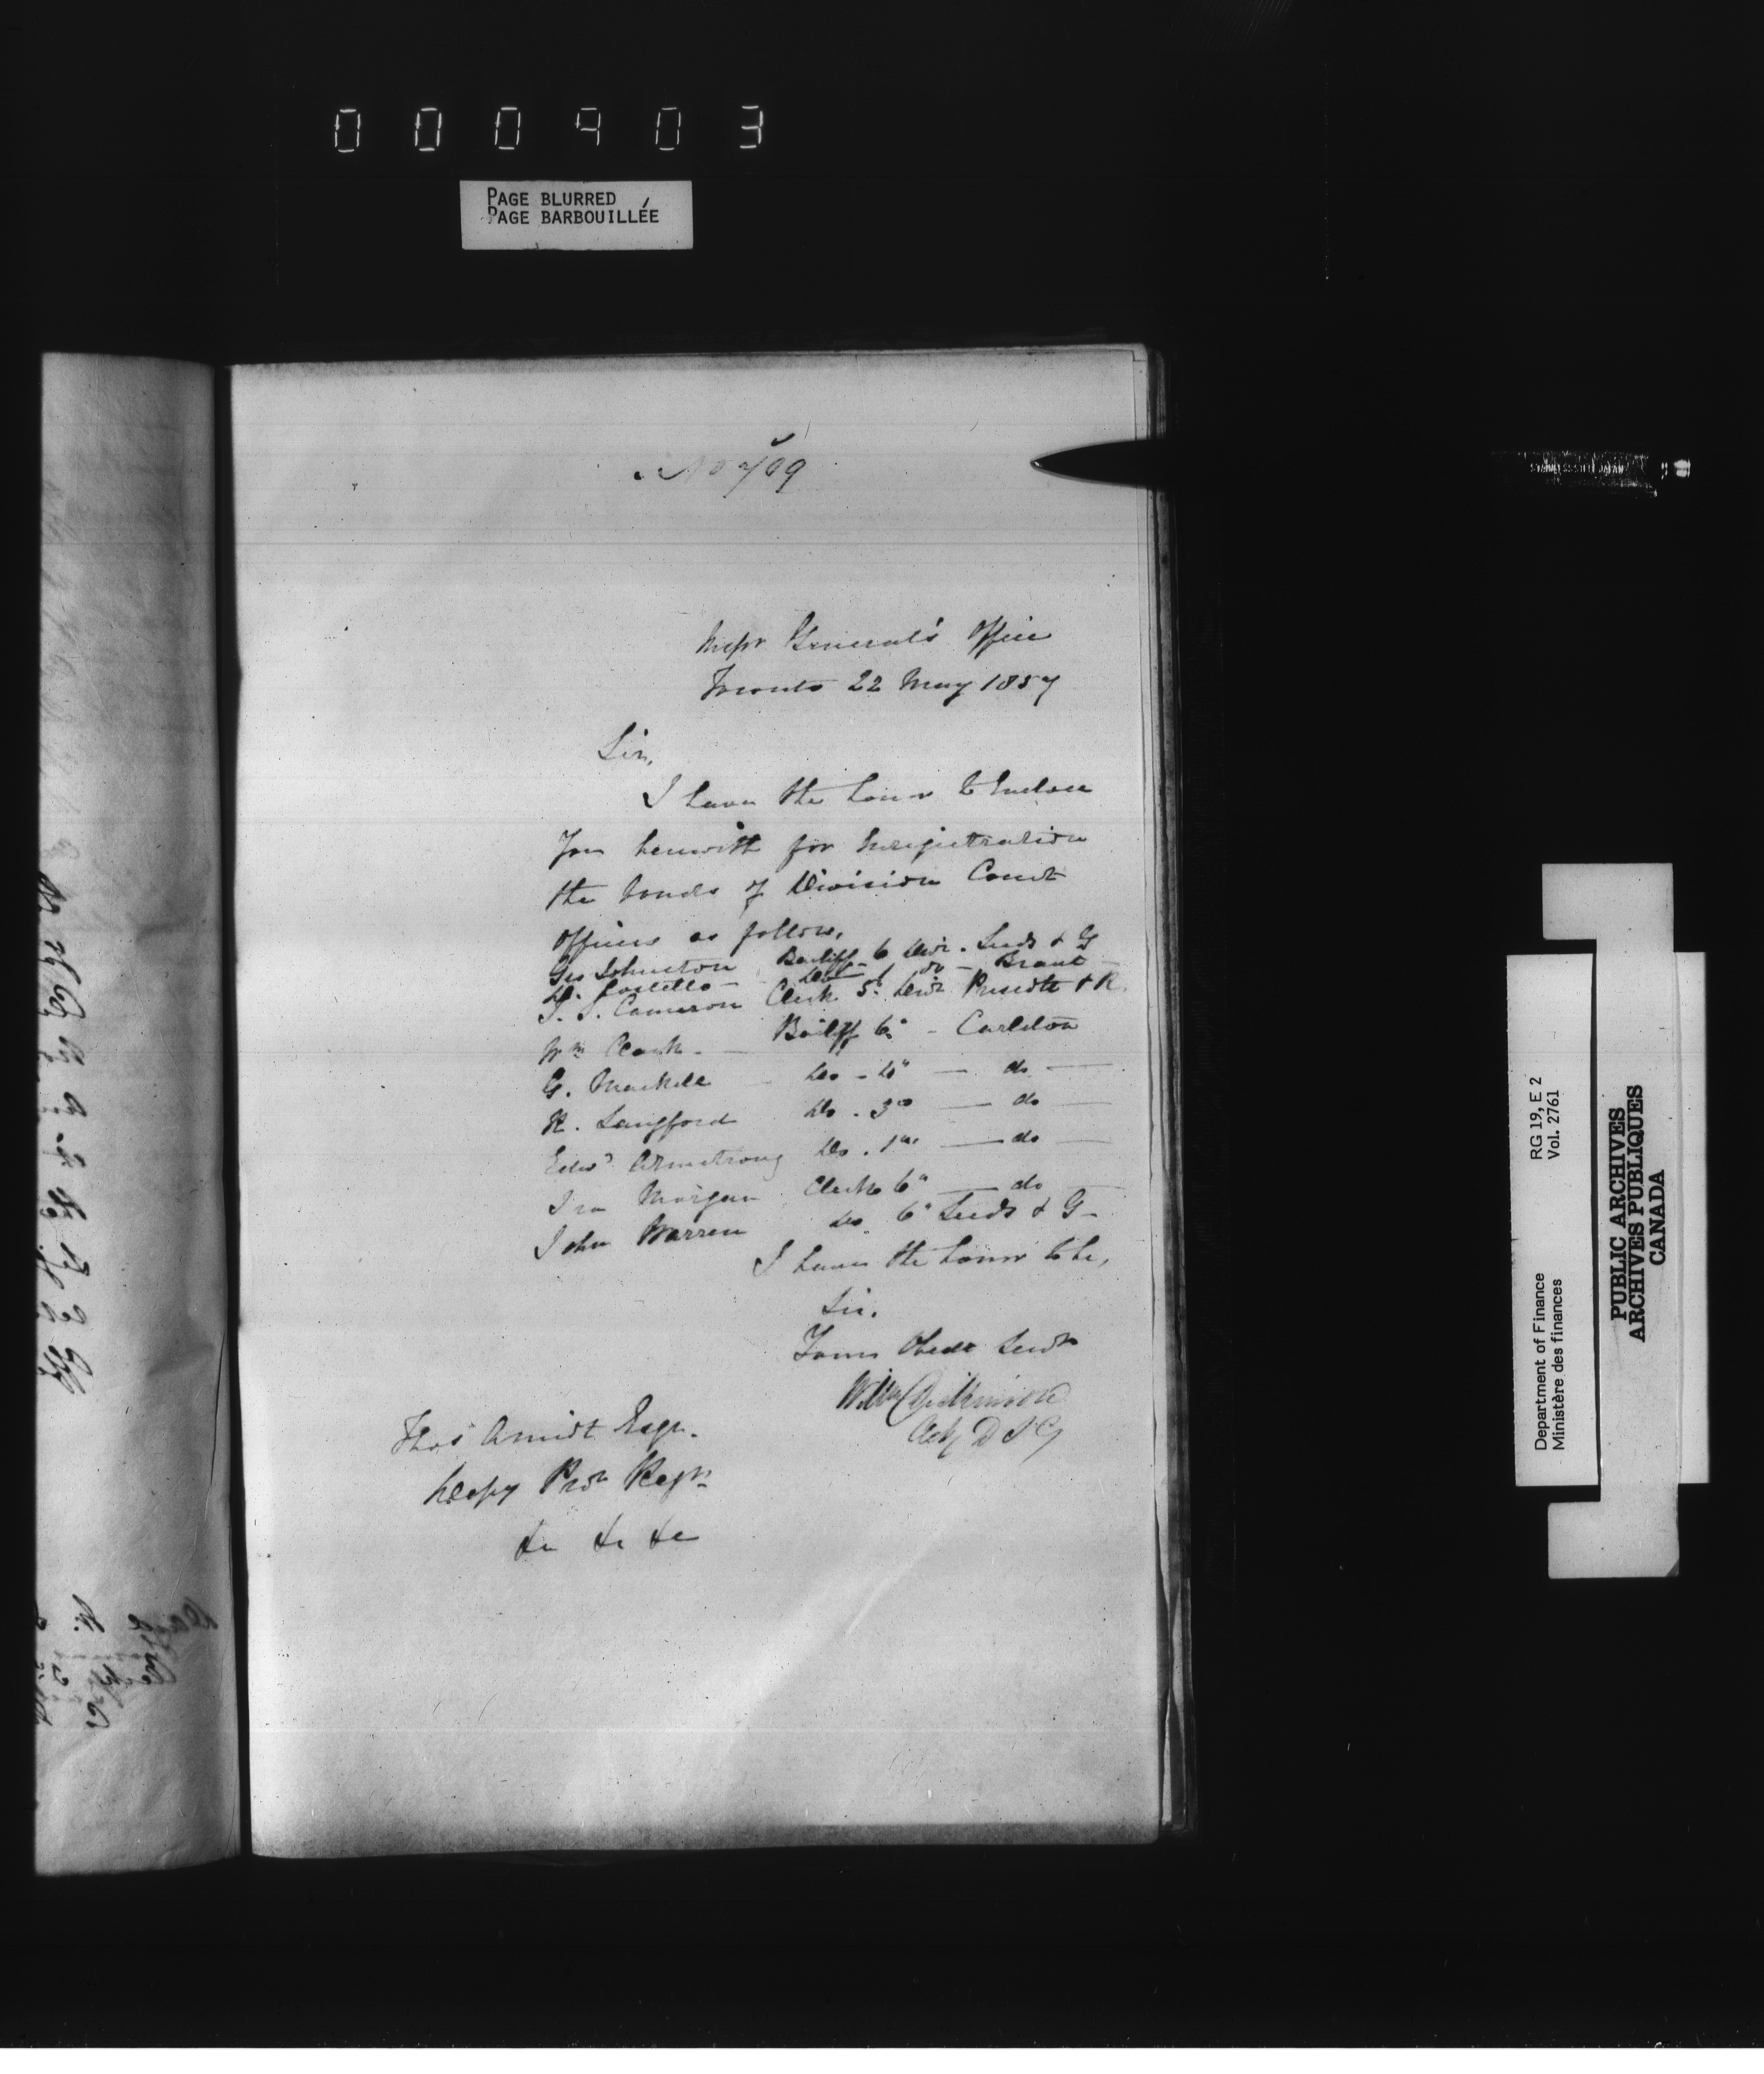 000403
PAGE BLURRED
PAGE BARBOUILLÉE
No 709
Inspr General's Office
Toronto 22 May 1857
Sir,
I have the honor to Enclose
You herewith for Enregistration
the bonds of Division Court
Officers as follow,
Geo Johnston Bailiff 6 Divn. Leeds & G
D. Costello - do - Brant -
J. S. Cameron Clerk 5th Divn Prescott & R.
Wm Clark - Bailiff 6" - Carleton
G. Do - do
R. Langford Do . 3rd — do —
Edwd Armstrong Do . 1st — do —
Ira Morgan Clerk 6" — do —
John Warren Do 6" Leeds & G -
I have the honor to be,
Sir.
Your Obedt Servt
Wm Dickinson
Actg D I G
Thos Amiot Esqr.
Deputy Prov Regr.
&c &c &c
Department of Finance RG 19, E 2
Ministère des finances Vol. 2761
PUBLIC ARCHIVES
ARCHIVES PUBLIQUES
CANADA